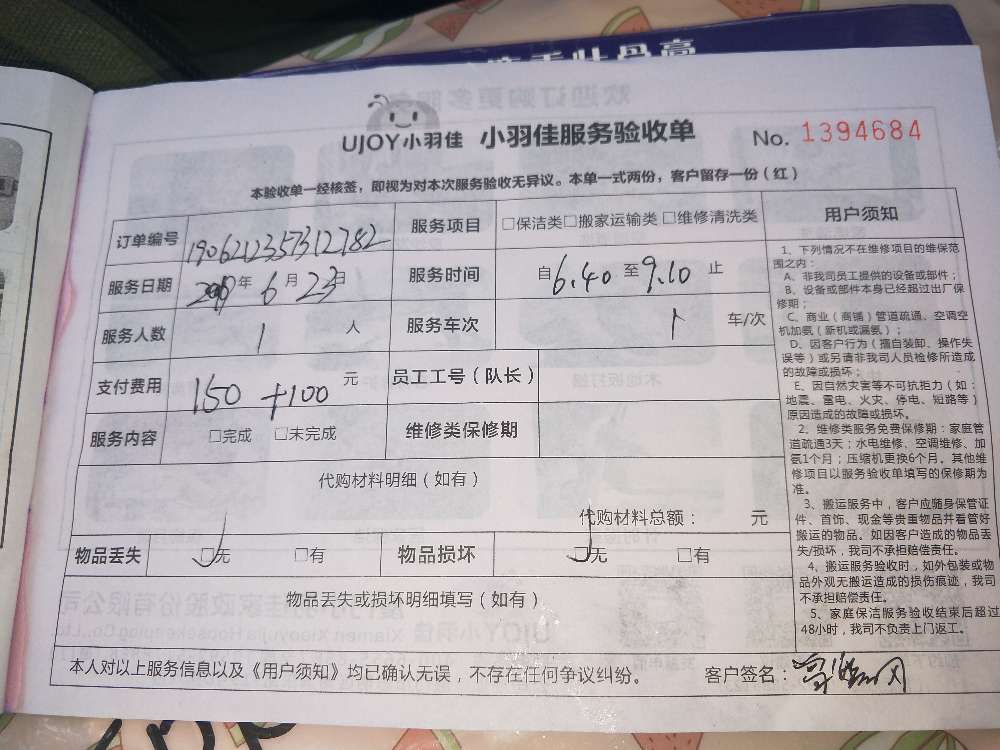 UJOY小羽佳 小羽佳服务验收单 No. 1394684
本验收单一经核签，即视为对本次服务验收无异议。本单一式两份，客户留存一份（红）
订单编号 1906212357312782 服务项目 □保洁类□搬家运输类 □维修清洗类
服务日期 2019年 6月 23日 服务时间 自 6.40 至 9.10 止
服务人数 1 人 服务车次 1 车/次
支付费用 150 +100 元 员工工号（队长）
服务内容 □完成 □未完成 维修类保修期
代购材料明细（如有）
代购材料总额： 元
物品丢失 □无 □有 物品损坏 □无 □有
物品丢失或损坏明细填写（如有）
本人对以上服务信息以及《用户须知》均已确认无误，不存在任何争议纠纷。 客户签名：
用户须知
1、下列情况不在维修项目的维保范
围之内：
A、非我司员工提供的设备或部件；
B、设备或部件本身已经超过出厂保
修期；
C、商业（商铺）管道疏通、空调空
机加氨（新机或漏氨）；
D、因客户行为（擅自装卸、操作失
误等）或另请非我司人员检修所造成
的故障或损坏；
E、因自然灾害等不可抗拒力（如：
地震、雷电、火灾、停电、短路等）
原因造成的故障或损坏。
2、维修类服务免费保修期：家庭管
道疏通3天；水电维修、空调维修、加
氨1个月；压缩机更换6个月。其他维
修项目以服务验收单填写的保修期为
准。
3、搬运服务中，客户应随身保管证
件、首饰、现金等贵重物品并看管好
搬运的物品。如因客户造成的物品丢
失/损坏，我司不承担赔偿责任。
4、搬运服务验收时，如外包装或物
品外观无搬运造成的损伤痕迹，我司
不承担赔偿责任。
5、家庭保洁服务验收结束后超过
48小时，我司不负责上门返工。